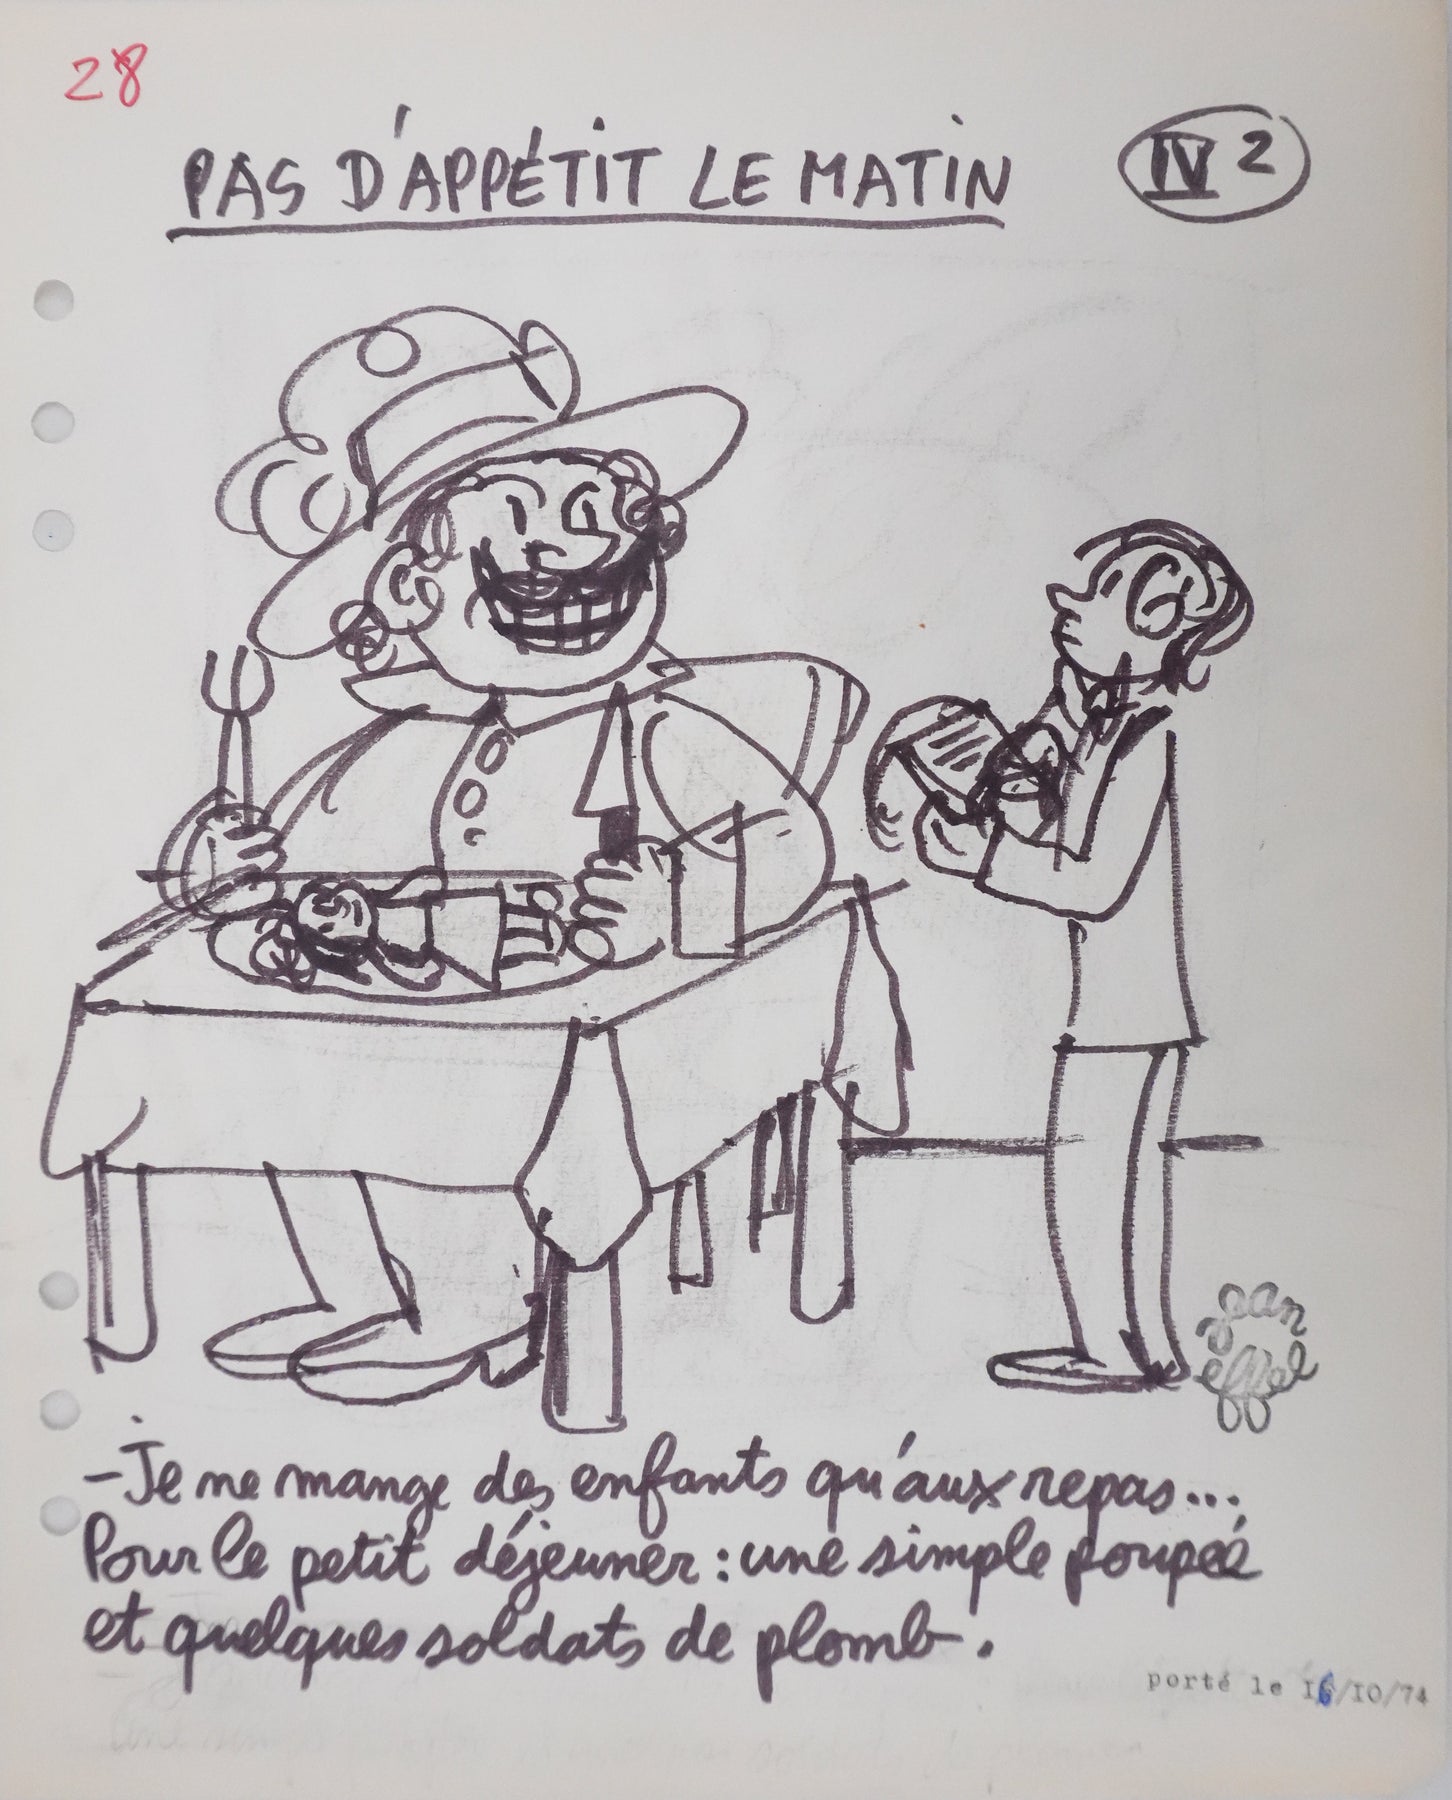 28
PAS D'APPÉTIT LE MATIN
IV 2
jean
effel
- Je ne mange des enfants qu'aux repas...
Pour le petit déjeuner : une simple poupée
et quelques soldats de plomb.
porté le I6/IO/74